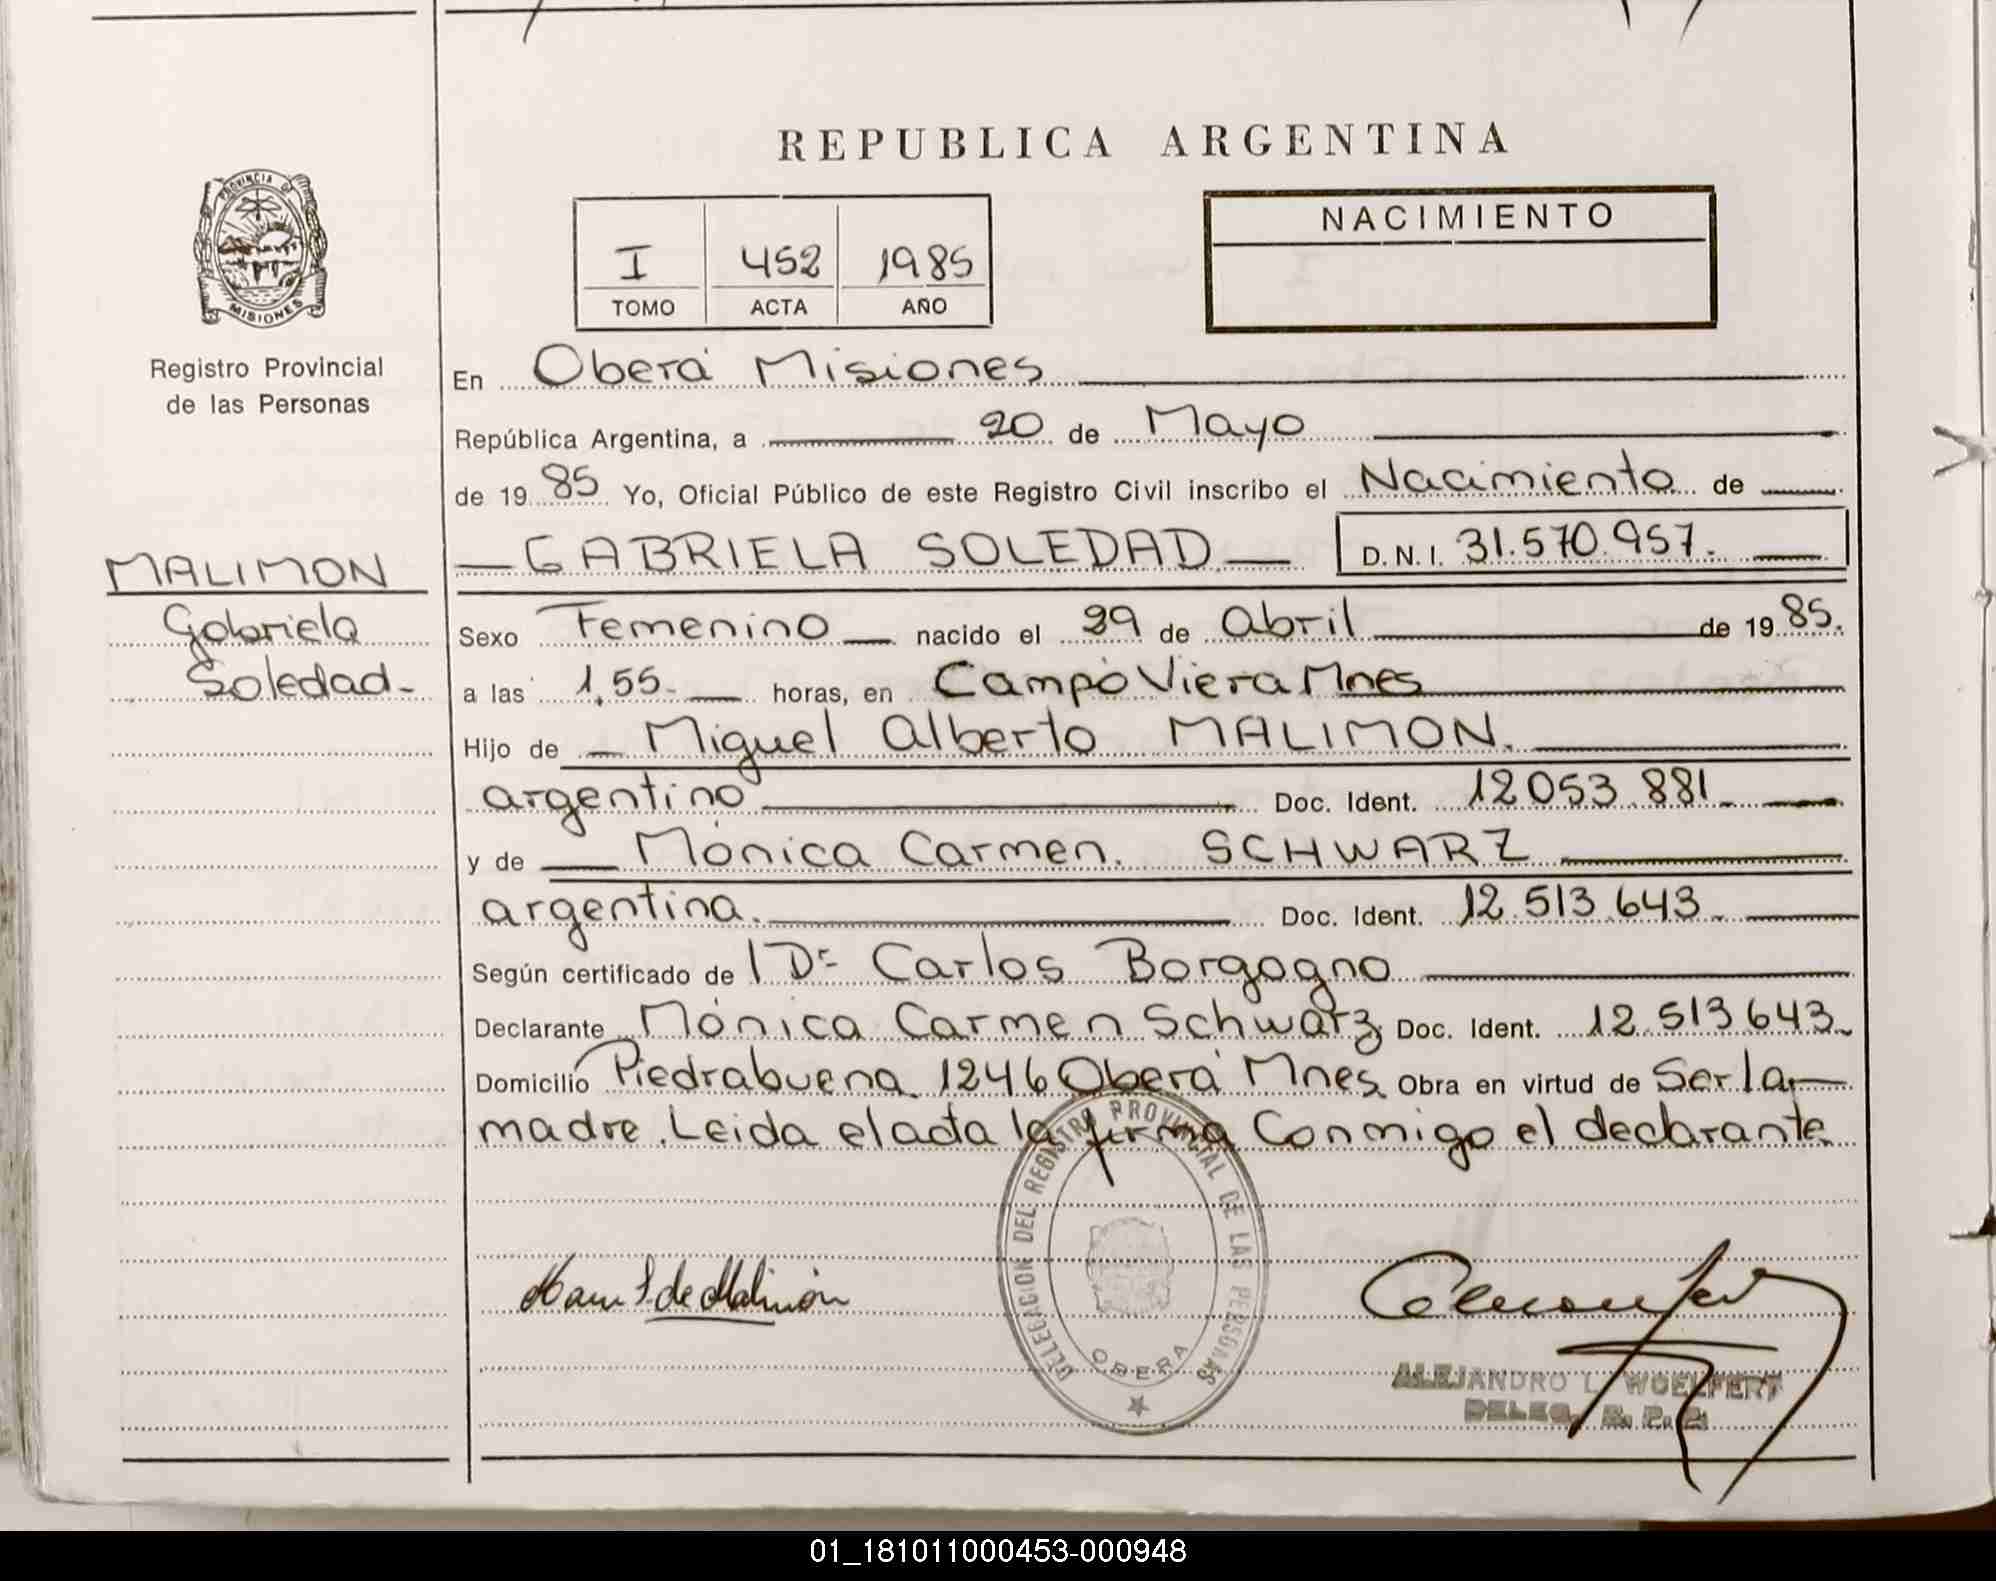 REPUBLICA ARGENTINA
PROVINCIA DE
MISIONES
Registro Provincial
de las Personas
I 452 1985
TOMO ACTA AÑO
NACIMIENTO
En Oberá Misiones
República Argentina, a 20 de Mayo
de 19 85 Yo, Oficial Público de este Registro Civil inscribo el Nacimiento de
MALIMON
Gabriela
Soledad
GABRIELA SOLEDAD D.N.I. 31.570.957.
Sexo Femenino nacido el 29 de abril de 19 85.
a las 1,55 horas, en Campo Viera Mnes
Hijo de Miguel Alberto MALIMON.
argentino Doc. Ident. 12053.881
y de Mónica Carmen. SCHWARZ
argentina. Doc. Ident. 12.513.643
Según certificado de Dr Carlos Borgogno
Declarante Mónica Carmen Schwarz Doc. Ident. 12.513643
Domicilio Piedrabuena 1246 Oberá Mnes Obra en virtud de Ser la
madre. Leida el acta la firma Conmigo el declarante
DELEGACION DEL REGISTRO PROVINCIAL DE LAS PERSONAS
OBERA
S. de Malimón
ALEJANDRO L. WOELFERT
DELEG. R. P. P.
01_181011000453-000948